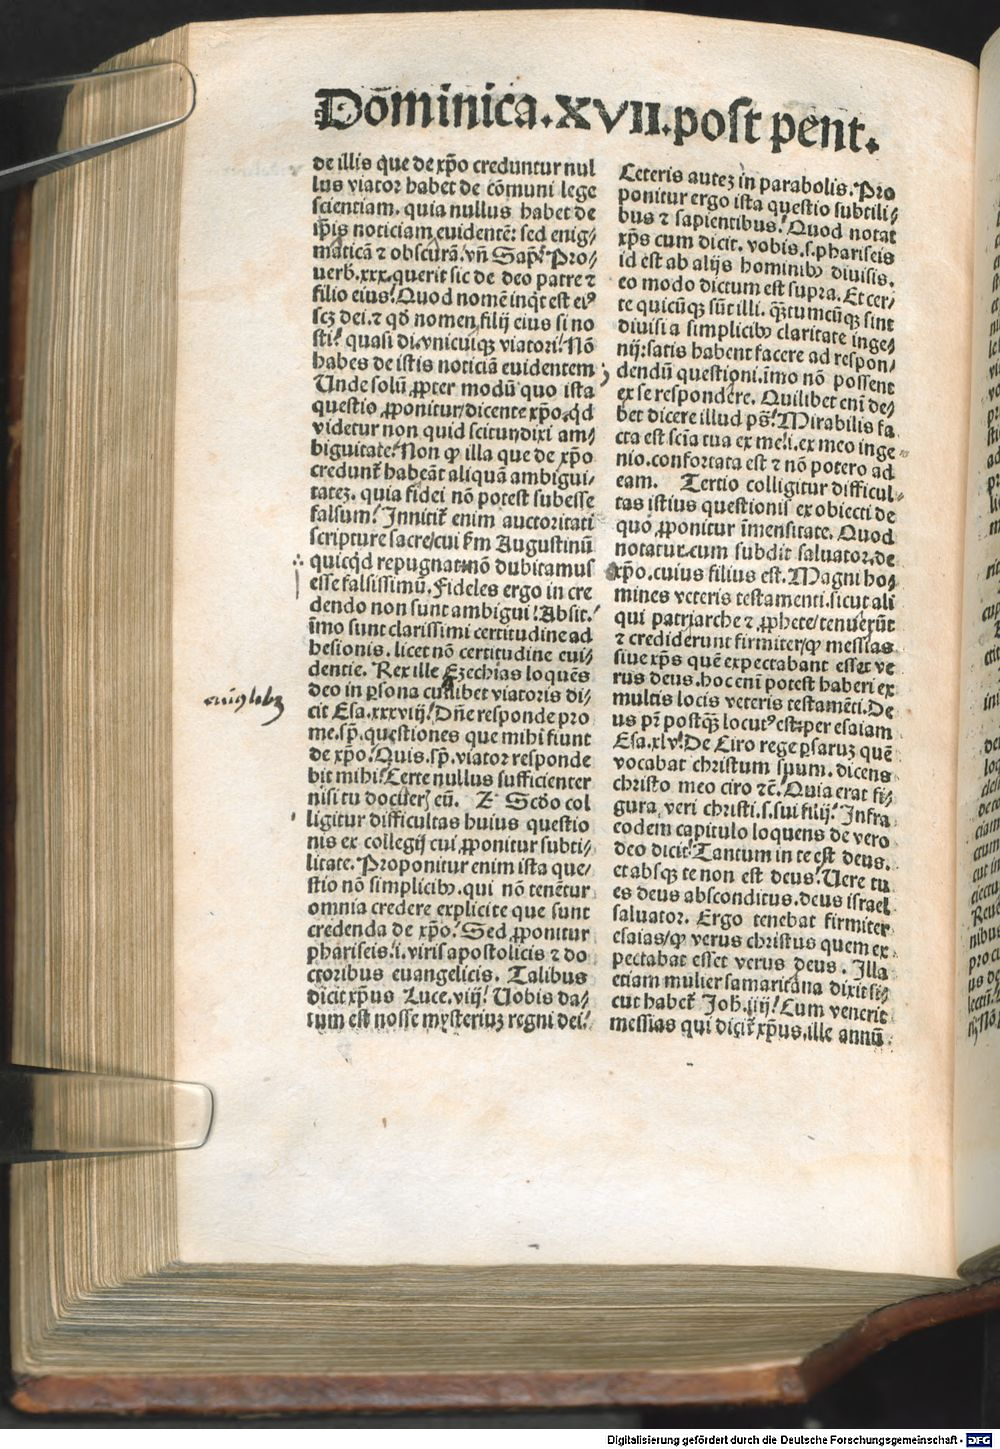 Dōminica.XVII.post pent.
de illis que de xp̄o creduntur nul
lus viator habet de cōmuni lege
scientiam. quia nullus habet de
ip̄is noticiam euidentē: sed enig⸗
maticā ⁊ obscurā. vn̄ Sap. Pro⸗
uerb.xxx.querit sic de deo patre ⁊
filio eius. Quod nomē inqͥt est eiꝰ
scꝫ dei.⁊ qd̄ nomen filij eius si no
sti? quasi di. vnicuiqꝫ viatori. Nō
habes de istis noticiā euidentem
Unde solū ꝓpter modū quo ista
questio ꝓponitur/dicente xp̄o. qd
videtur
biguitate. Non ꝙ illa que de xp̄o
credunt̄ habeāt aliquā ambigui⸗
tatez. quia fidei nō potest subesse
falsum. Innitit̄ enim auctoritati
scripture sacre/cui km̄ Augustinū
quicqͥd repugnat nō dubitamus
esse falsissimū. Fideles ergo in cre
dendo non sunt ambigui. Absit.
īmo sunt clarissimi certitudine ad
hesionis. licet nō certitudine eui⸗
dentie. Rex ille Ezechias loquēs
deo in ꝑsona cuilibet viatoris di⸗
cit Esa.xxxviij. Dn̄e responde pro
me.sp̄. questiones que mihi fiunt
de xp̄o. Quis.sp̄. viator responde
bit mihi. Certe nullus sufficienter
nisi tu eū. Scd̄o col
ligitur difficultas huius questio
nis ex collegij cui ꝓponitur subti⸗
litate. Proponitur enim ista que⸗
stio nō simplicibꝰ.qui nō tenētur
omnia credere explicite que sunt
credenda de xp̄o. Sed ꝓponitur
phariseis.i.viris apostolicis ⁊ do
ctoribus euangelicis. Talibus
dicit xp̄us Luce.viij. Uobis da⸗
tum est nosse mysteriuꝫ regni dei.
Ceteris auteꝫ in parabolis. Pro
ponitur ergo ista questio subtili⸗
bus ⁊ sapientibus. Quod notat
xp̄s cum dicit. vobis.s.phariseis
id est ab alijs hominibꝰ diuisis.
eo modo dictum est supra. Et cer⸗
te quicūqꝫ sūt illi. qͣꝫtumcūqꝫ sint
diuisi a simplicibꝰ claritate inge⸗
nij: satis habent facere ad respon⸗
dendū questioni. īmo nō possent
ex se respondere. Quilibet enī de⸗
bet dicere illud ps̄. Mirabilis fa
cta est scīa tua ex me.i.ex meo inge⸗
nio. confortata est ⁊ nō potero ad
eam. Tertio colligitur difficul⸗
tas istius questionis ex obiecti de
quo ꝓponitur īmensitate. Quod
notatur.cum subdit saluator.de
xp̄o.cuius filius est. Magni ho⸗
mines veteris testamenti.sicut ali
qui patriarche ⁊ ꝓphete/tenuerūt
⁊ crediderunt firmiter/ꝙ messias
siue xp̄s quē expectabant esset ve
rus deus. hoc enī potest haberi ex
multis locis veteris testamēti. De
us pr̄ postqͣꝫ locutꝰ est per esaiam
Esa.xlv. De Ciro rege ꝑsaruꝫ quē
vocabat christum suum. dicens
christo meo ciro ⁊c̄. Quia erat fi⸗
gura veri christi.s.sui filij. Infra
eodem capitulo loquens de vero
deo dicit. Tantum in te est deus.
et absqꝫ te non est deus. Uere tu
es deus absconditus.deus israel
saluator. Ergo tenebat firmiter
esaias/ꝙ verus christus quem ex⸗
pectabat esset verus deus. Illa
etiam mulier samaritana dixit si⸗
cut habet̄ Joh̄.iiij. Cum venerit
messias qui dicit̄ xp̄us.ille annū⸗
Digitalisierung gefördert durch die Deutsche Forschungsgemeinschaft - DFG